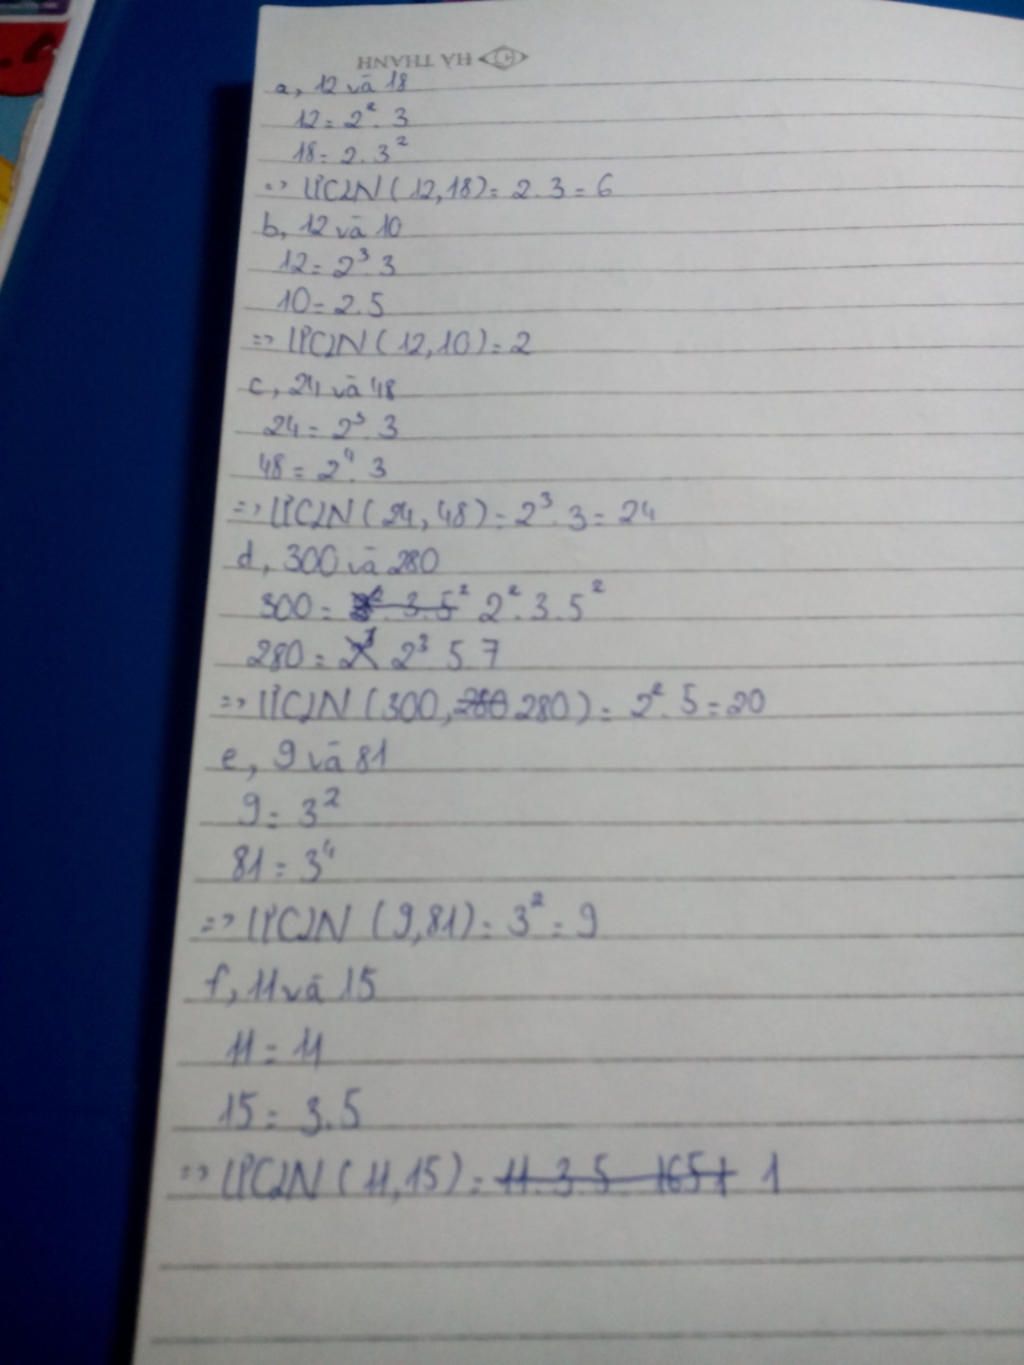 HÀ THANH
a, 12 và 18
12 = 2². 3
18 = 2. 3²
=> ƯCLN (12,18) = 2. 3 = 6
b, 12 và 10
12 = 2³. 3
10 = 2. 5
=> ƯCLN (12,10) = 2
c, 24 và 48
24 = 2³. 3
48 = 2⁴. 3
=> ƯCLN (24, 48) = 2³. 3 = 24
d, 300 và 280
300 = 2². 3. 5²
280 = 2³ 5. 7
=> ƯCLN (300, 280) = 2². 5 = 20
e, 9 và 81
9 = 3²
81 = 3⁴
=> ƯCLN (9,81) = 3² = 9
f, 11 và 15
11 = 11
15 = 3. 5
=> ƯCLN (11,15) = 11. 3. 5 = 165 1 1